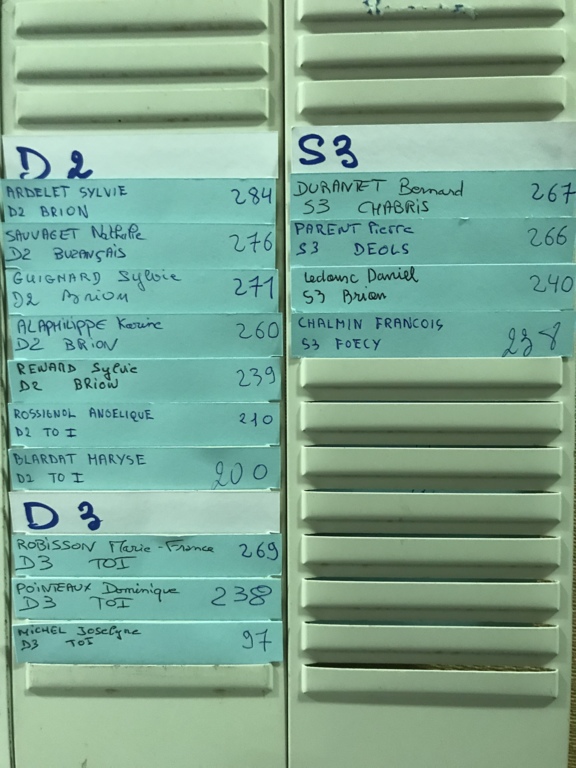 D2
ARDELET SYLVIE 284
D2 BRION
SAUVAGET Nathalie 276
D2 BUZANÇAIS
GUIGNARD Sylvie 271
D2 Brion
ALAPHILIPPE Karine 260
D2 BRION
REWARD Sylvie 239
D2 BRION
ROSSIGNOL ANGELIQUE 210
D2 TO I
BLARDAT MARYSE 200
D2 TO I
D3
ROBISSON Marie-France 269
D3 TOI
POINTEAUX Dominique 238
D3 TOI
MICHEL Joselyne 97
D3 TOI
S3
DURANTET Bernard 267
S3 CHABRIS
PARENT Pierre 266
S3 DEOLS
Leclanc Daniel 240
S3 Brion
CHALMIN FRANCOIS 238
S3 FOECY